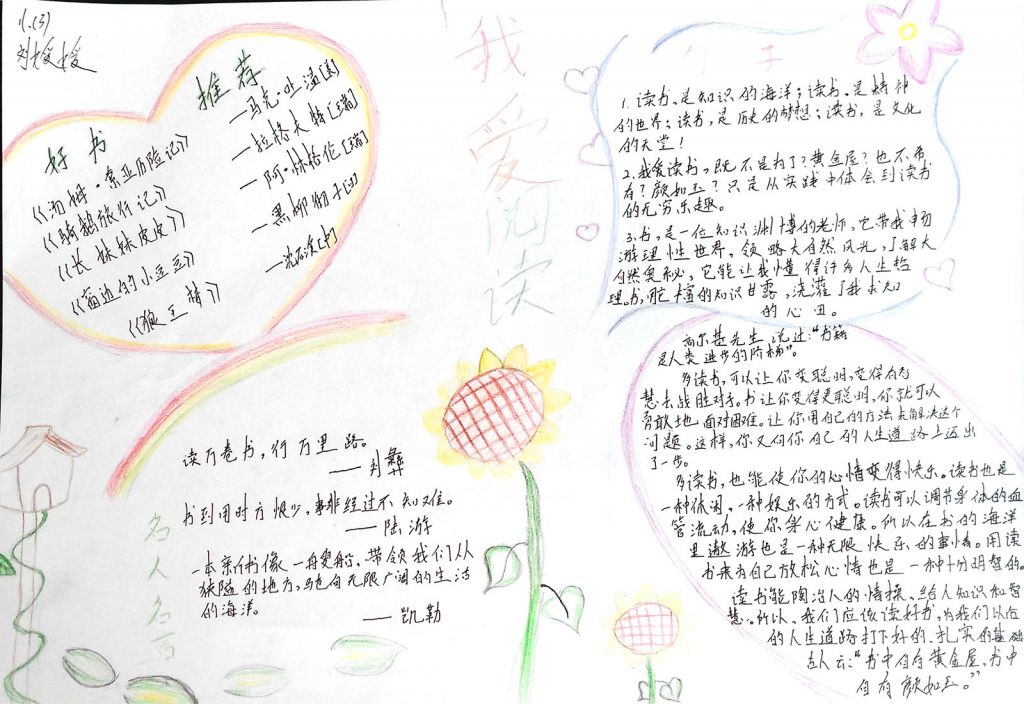 八.(3)
刘媛媛
好书
推荐
《汤姆·索亚历险记》
—马克·吐温[美]
《骑鹅旅行记》
—拉格夫特[瑞]
《长妹妹皮皮》
—阿·林格伦[瑞]
《窗边的小豆豆》
—黑柳彻子[日]
《狼王梦》
—沈石溪[中]
我爱阅读
读万卷书，行万里路。
——刘彝
书到用时方恨少，事非经过不知难。
——陆游
一本新书像一艘船，带领我们从
狭隘的地方，驶向无限广阔的生活
的海洋。
——凯勒
名人名言
1.读书，是知识的海洋；读书，是精神
的世界；读书，是历史的梦想；读书，是文化
的天堂！
2.我爱读书，既不是为了？黄金屋？也不希
有？颜如玉？只是从实践中体会到读书
的无穷乐趣。
3.书，是一位知识渊博的老师，它带我畅
游理性世界，领略大自然风光，了解大
自然奥秘，它能让我懂得许多人生哲
理。书，用它丰富的知识甘露，浇灌了我求知
的心田。
高尔基先生说过："书籍
是人类进步的阶梯"。
多读书，可以让你变聪明，变得有智
慧去战胜对手。书让你变得更聪明，你就可以
勇敢地面对困难。让你用自己的方法去解决这个
问题。这样，你又向你自己的人生道路上迈出
了一步。
多读书，也能使你的心情变得快乐。读书也是
一种休闲，一种娱乐的方式。读书可以调节身体的血
管流动，使你身心健康。所以在书的海洋
里遨游也是一种无限快乐的事情。用读
书来为自己放松心情也是一种十分明智的。
读书能陶冶人的情操，给人知识和智
慧。所以，我们应该读好书，为我们以后
的人生道路打下好的、扎实的基础
古人云："书中自有黄金屋，书中
自有颜如玉。"